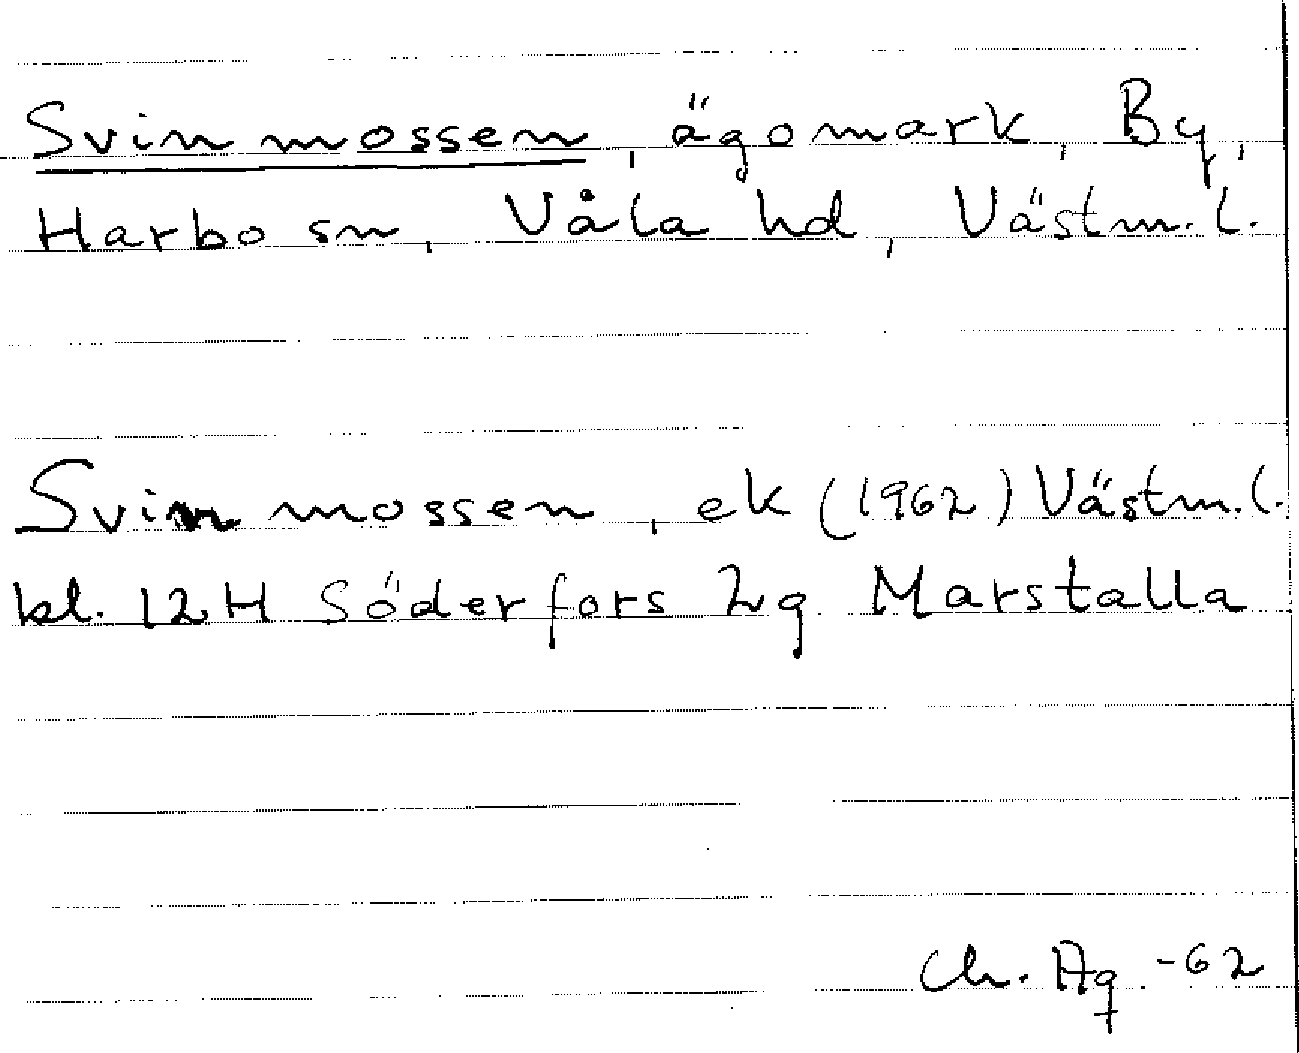 Svinmossen, ägomark, By,
Harbo sn, Våla hd, Västm.l.
Svinmossen, ek (1962) Västm.l.
bl. 12H Söderfors 2g Marstalla
Ch. Aq. -62